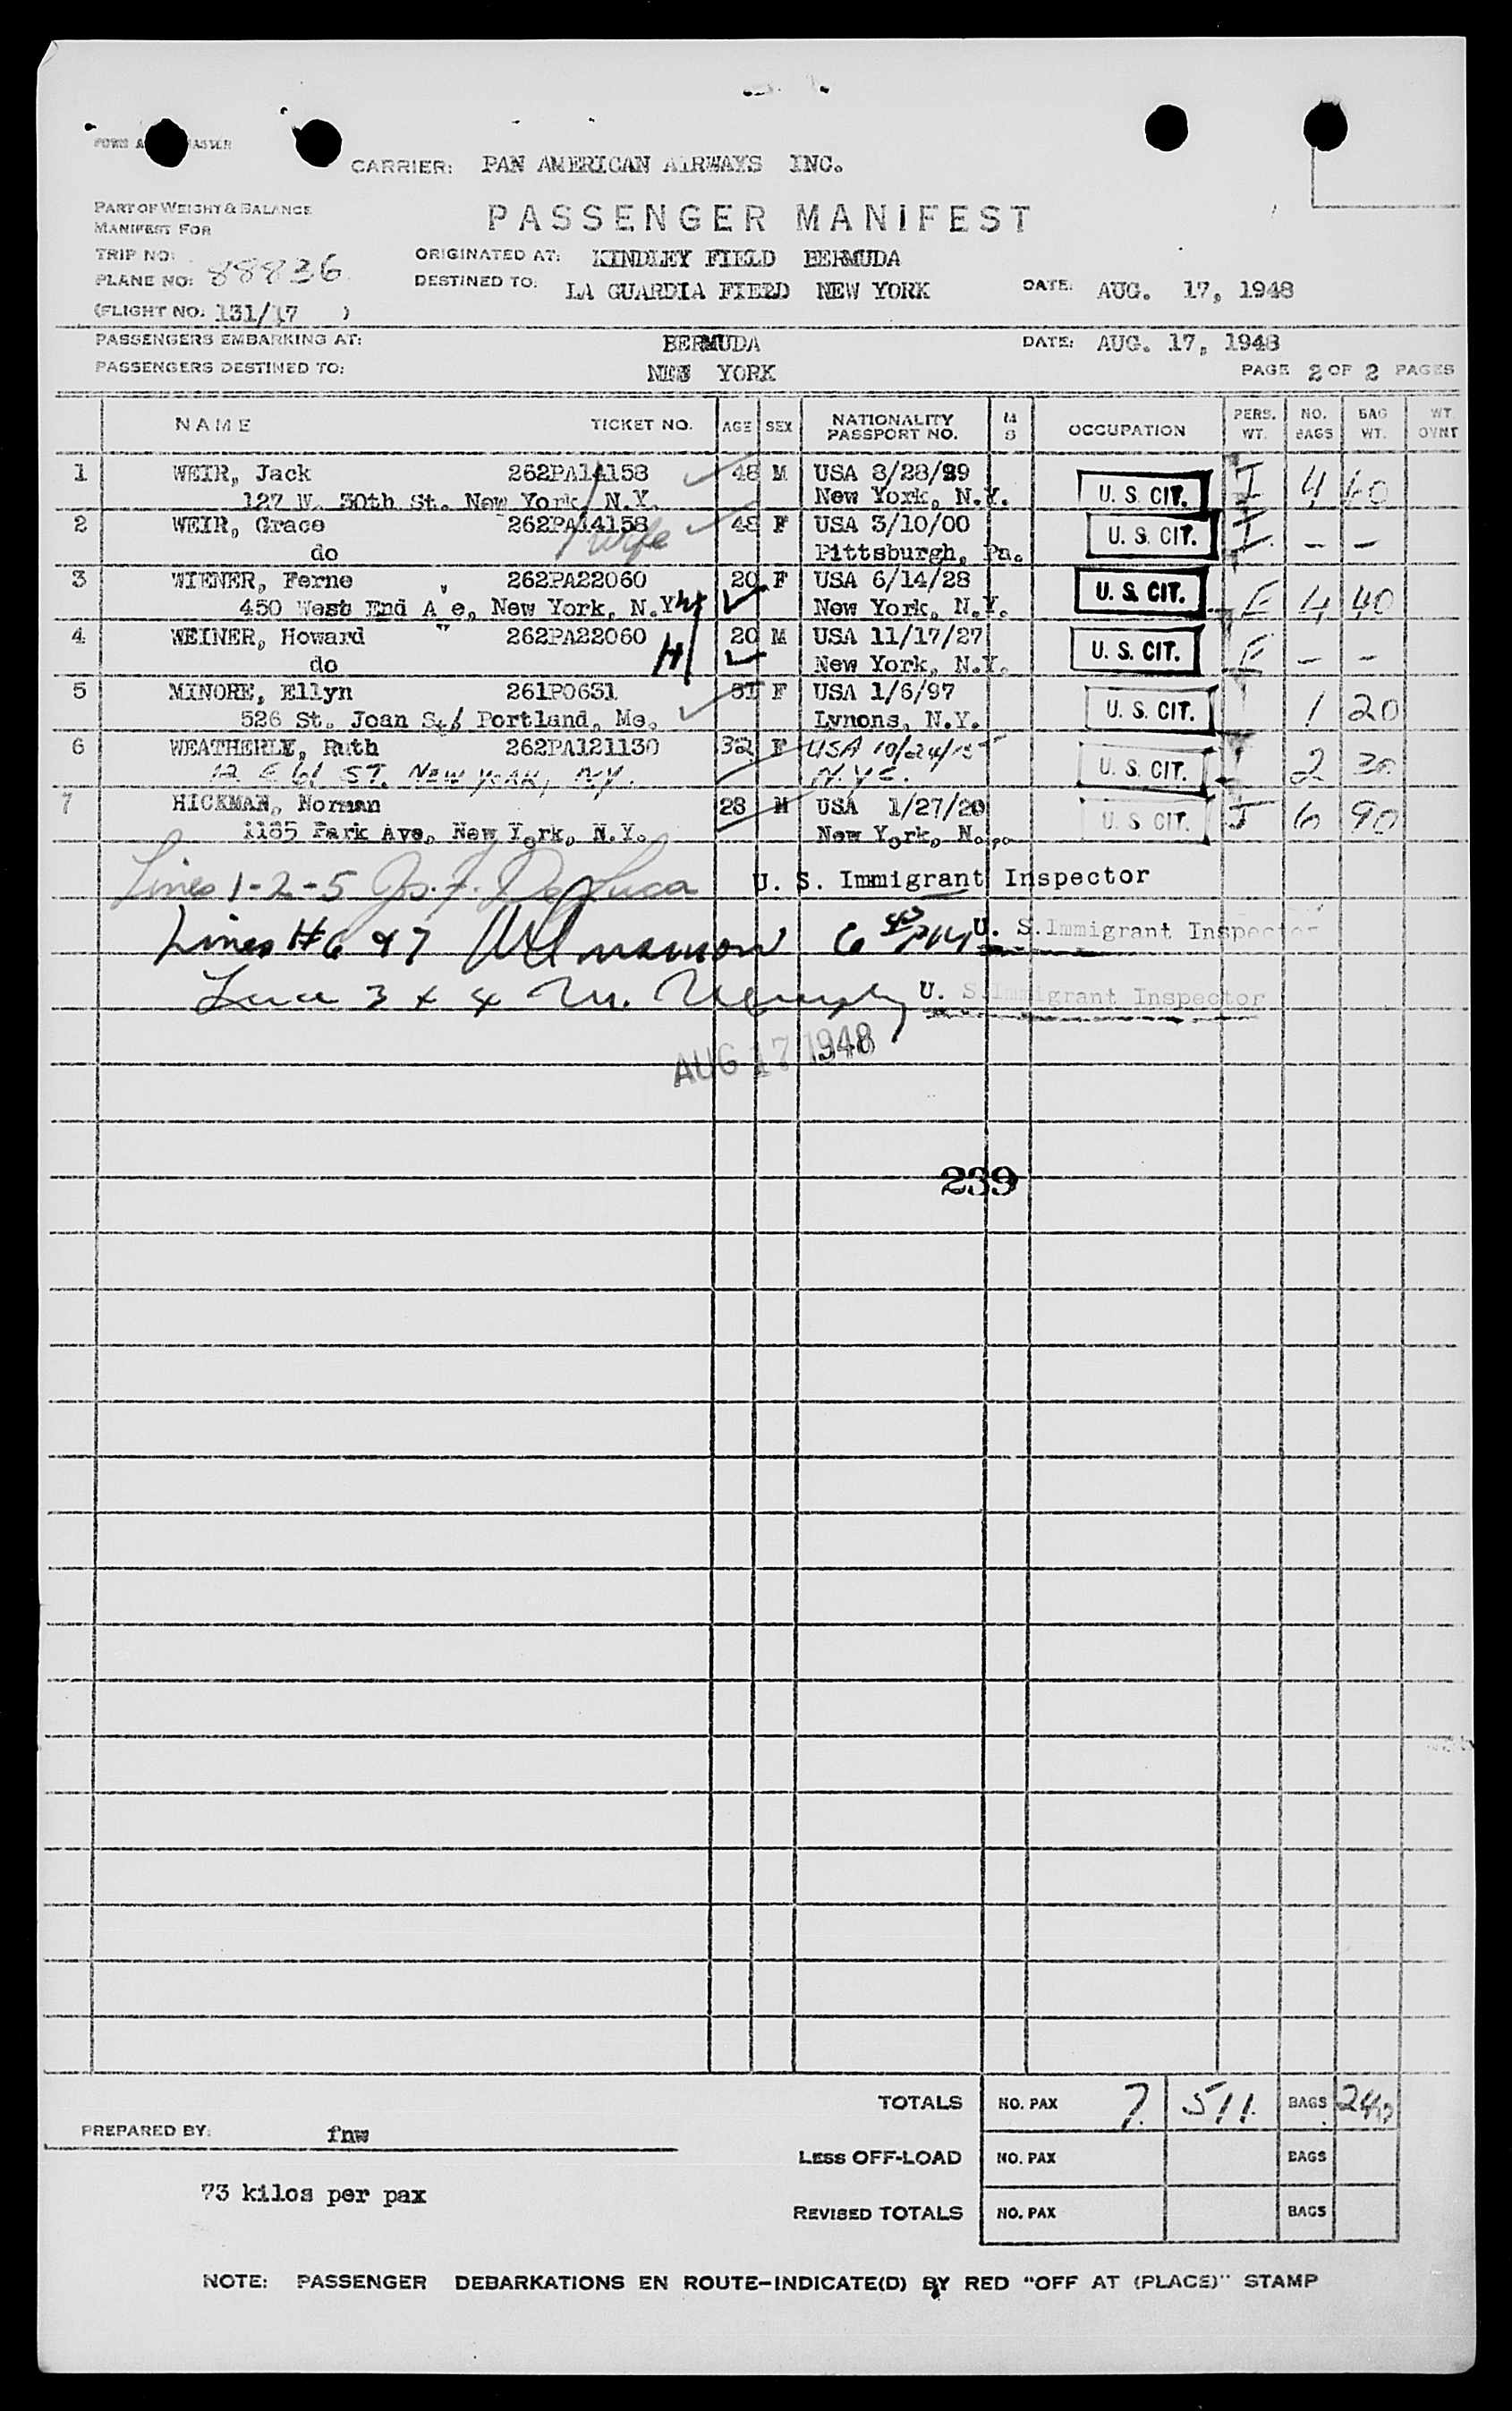 CARRIER: PAN AMERICAN AIRWAYS INC.
PART OF WEIGHT & BALANCE
MANIFEST FOR
PASSENGER MANIFEST
TRIP NO:
PLANE NO: 88836
(FLIGHT NO. 131/17 )
ORIGINATED AT: KINDLEY FIELD BERMUDA
DESTINED TO: LA GUARDIA FIELD NEW YORK DATE: AUG. 17, 1948
PASSENGERS EMBARKING AT: BERMUDA DATE: AUG. 17, 1948
PASSENGERS DESTINED TO: NEW YORK PAGE 2 OF 2 PAGES
NAME TICKET NO. AGE SEX NATIONALITY PASSPORT NO. M S OCCUPATION PERS. WT. NO. BAGS BAG WT. WT. OVNT
1 WEIR, Jack 262PA14158 48 M USA 8/28/99 U. S. CIT. I 4 60
127 W. 30th St. New York, N.Y. New York, N.Y.
2 WEIR, Grace 262PA14158 48 F USA 3/10/00 U. S. CIT. I - -
do wife Pittsburgh, Pa.
3 WIENER, Ferne 262PA22060 20 F USA 6/14/28 U. S. CIT. E 4 40
450 West End A've, New York, N.Y. W New York, N.Y.
4 WEINER, Howard " 262PA22060 20 M USA 11/17/27 U. S. CIT. E - -
do H New York, N.Y.
5 MINORE, Ellyn 261PO631 51 F USA 1/6/97 U. S. CIT. 1 20
526 St. Joan St, Portland, Me. Lynons, N.Y.
6 WEATHERLY, Ruth 262PA121130 32 F USA 10/24/15 U. S. CIT. 2 30
12 E 61 ST. NEW YORK, N.Y. N.Y.C.
7 HICKMAN, Norman 28 M USA 1/27/20 U. S. CIT. I 6 90
1185 Park Ave, New York, N.Y. New York, N.
Lines 1-2-5 Jos. F. De Luca U. S. Immigrant Inspector
Lines # 6 & 7 6 45 PM U. S. Immigrant Inspector
Line 3 & 4 M. Murphy U. S. Immigrant Inspector
AUG 17 1948
239
TOTALS NO. PAX 7 511 BAGS 240
PREPARED BY: fnw
LESS OFF-LOAD NO. PAX BAGS
73 kilos per pax
REVISED TOTALS NO. PAX BAGS
NOTE: PASSENGER DEBARKATIONS EN ROUTE-INDICATE(D) BY RED "OFF AT (PLACE)" STAMP